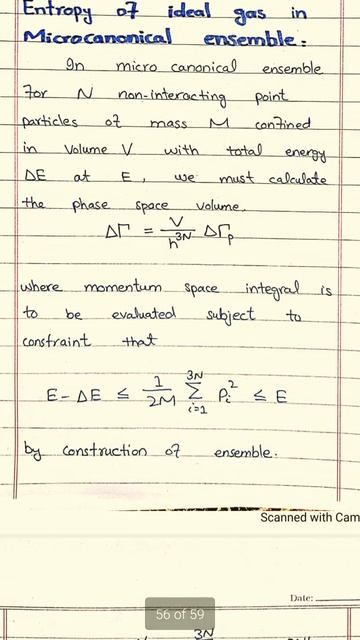 Entropy of ideal gas in
Microcanonical ensemble:
In micro canonical ensemble
for N non-interacting point
particles of mass M confined
in Volume V with total energy
ΔE at E, we must calculate
the phase space volume.
ΔΓ = V/h^3N ΔΓp
where momentum space integral is
to be evaluated subject to
constraint that
E-ΔE ≤ 1/2M Σ_{i=1}^{3N} P_i^2 ≤ E
by construction of ensemble.
Scanned with Cam
Date:
56 of 59
3N